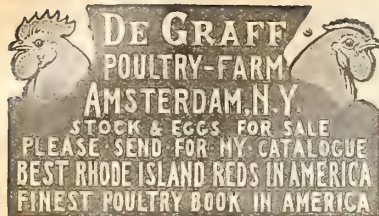 DE GRAFF
POULTRY-FARM
AMSTERDAM, N.Y.
STOCK & EGGS FOR SALE
PLEASE SEND FOR MY CATALOGUE
BEST RHODE ISLAND REDS IN AMERICA
FINEST POULTRY BOOK IN AMERICA